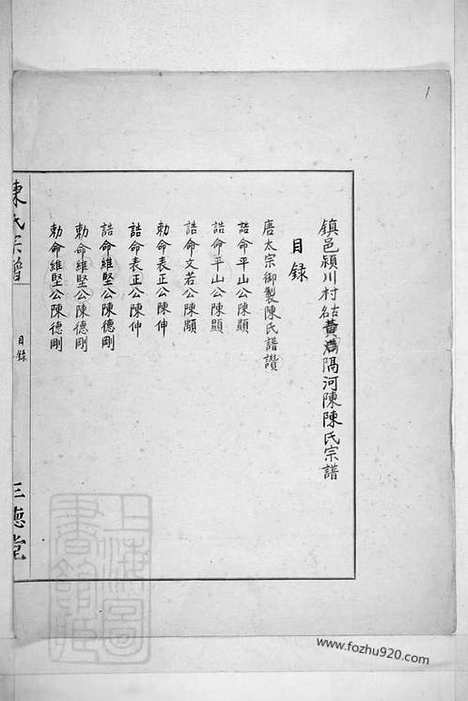 1
鎮邑潁川村結黄灣隔河陳陳氏宗譜
目錄
唐太宗御製陳氏譜讚
誥命平山公陳顯
誥命平山公陳顯
誥命文若公陳顒
勅命表正公陳仲
誥命表正公陳仲
誥命維堅公陳德剛
勅命維堅公陳德剛
勅命維堅公陳德剛
陳氏宗譜
目錄
三德堂
上海圖書館藏
www.fozhu920.com